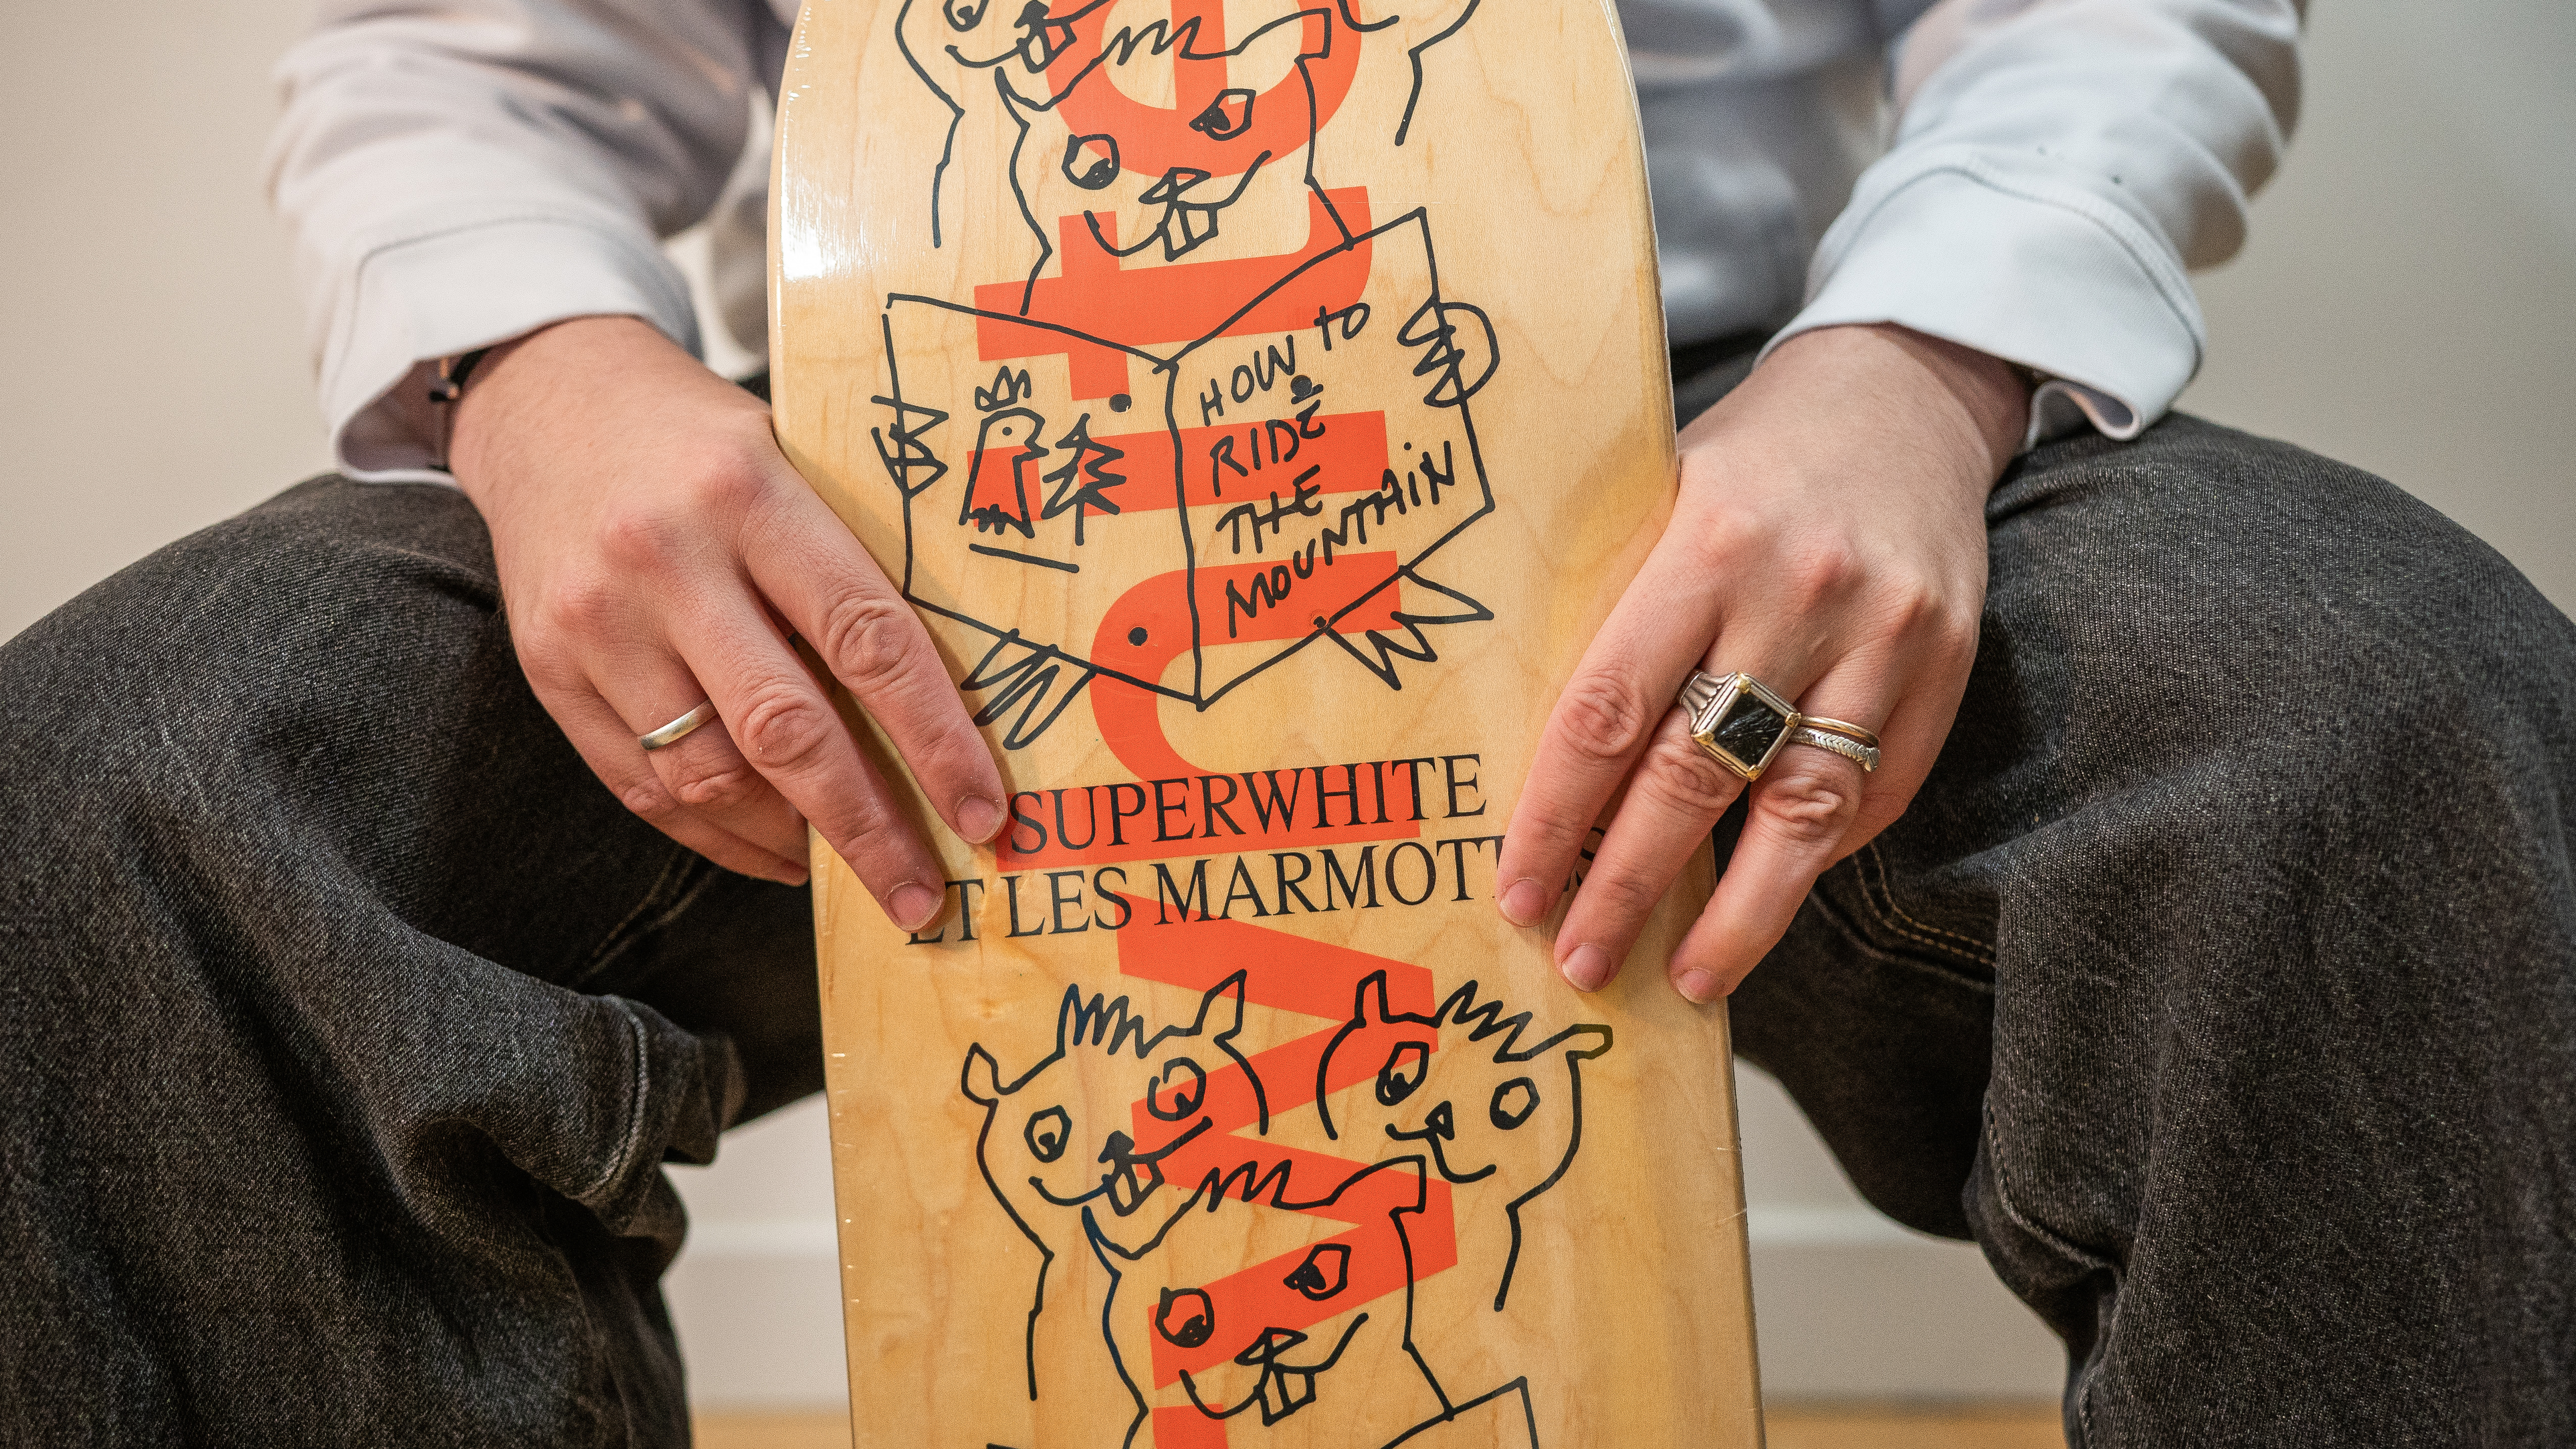 HOW to
RIDE
THE
MOUNTAIN
SUPERWHITE
ET LES MARMOTTES